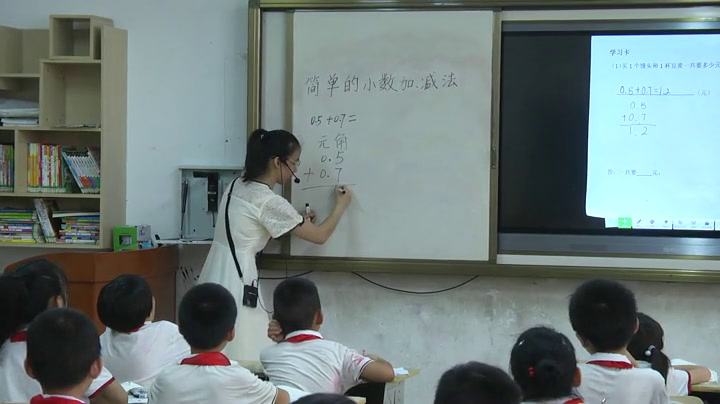 简单的小数加、减法
0.5+0.7=
元角
0.5
+0.7
学习卡
(1)买1个馒头和1杯豆浆一共要多少元
0.5+0.7=1.2 (元)
0.5
+0.7
1.2
答:一共要____元。